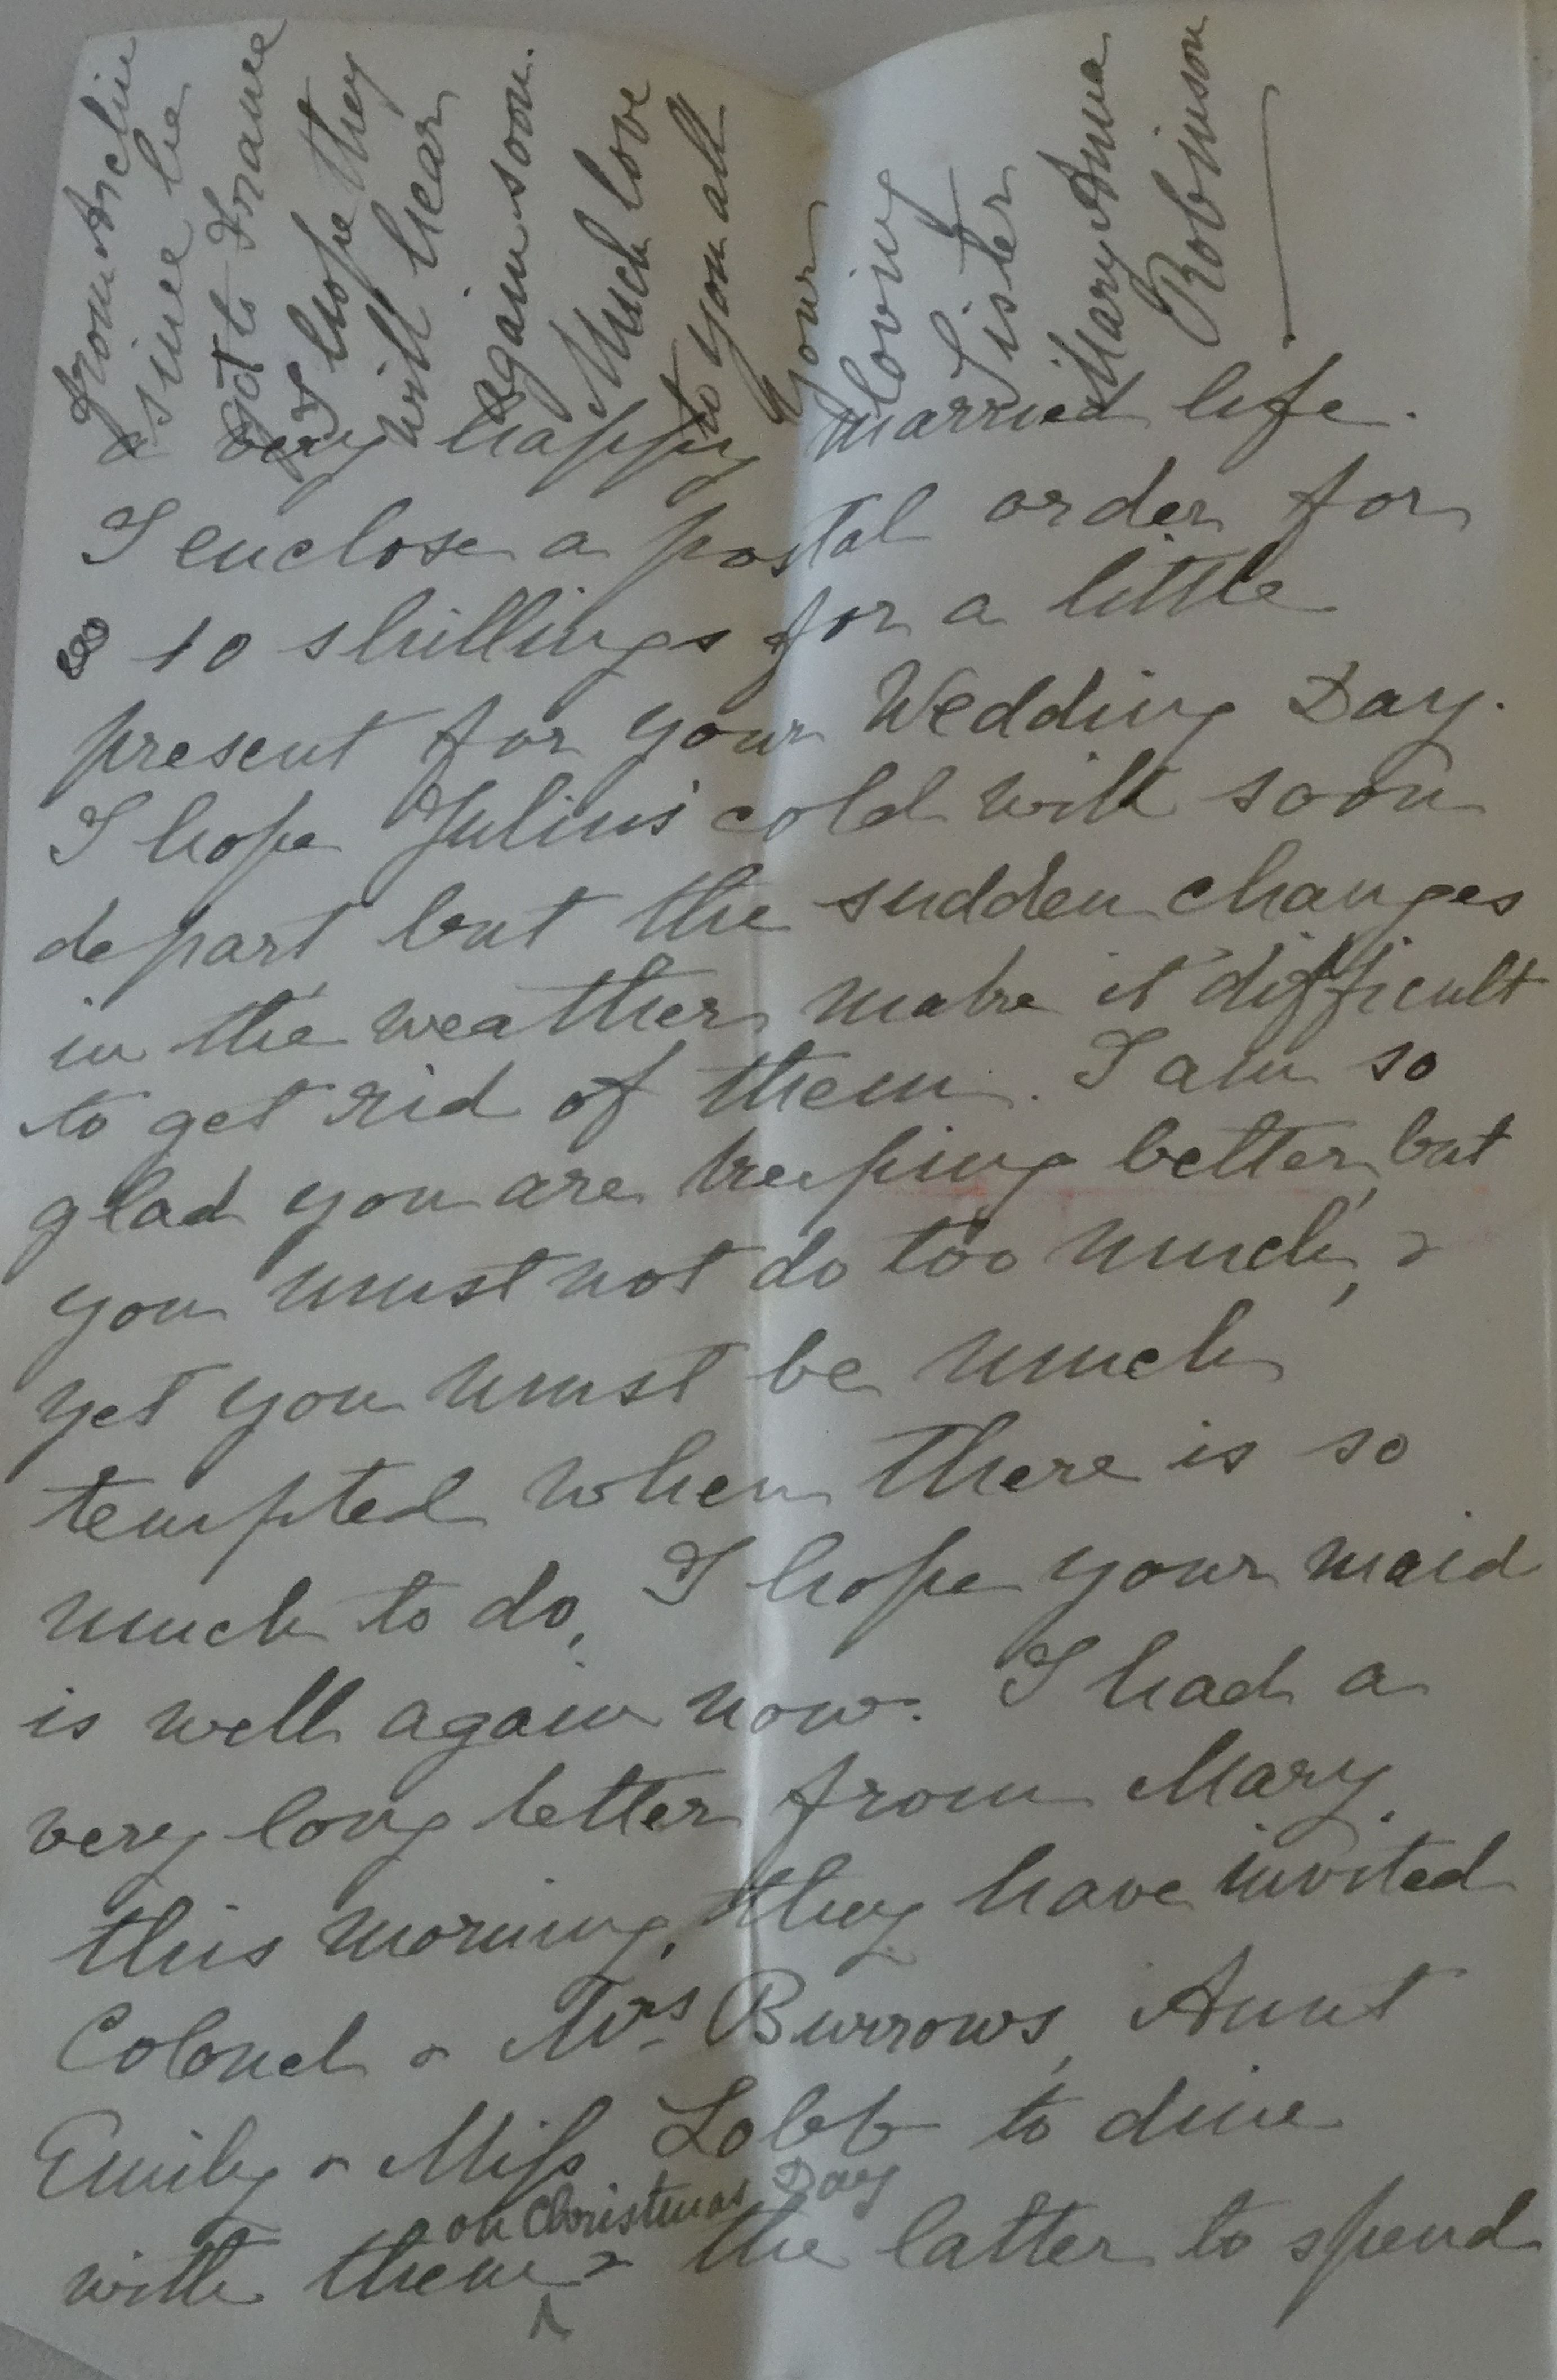 a very happy married life.
I enclose a postal order for
10 shillings for a little
present for your Wedding Day.
I hope Julius' cold will soon
depart but the sudden changes
in the weather make it difficult
to get rid of them. I am so
glad you are keeping better, but
you must not do too much, &
yet you must be much
tempted when there is so
much to do, I hope your maid
is well again now. I had a
very long letter from Mary
this morning, they have invited
Colonel & Mrs Burrows, Aunt
Emily & Miss Lobb to dine
on Christmas Day
with them & the latter to spend
from Archie
since he
got to France
I hope they
will hear
again soon.
Much love
to you all
Your
loving
Sister
Mary Anna
Robinson